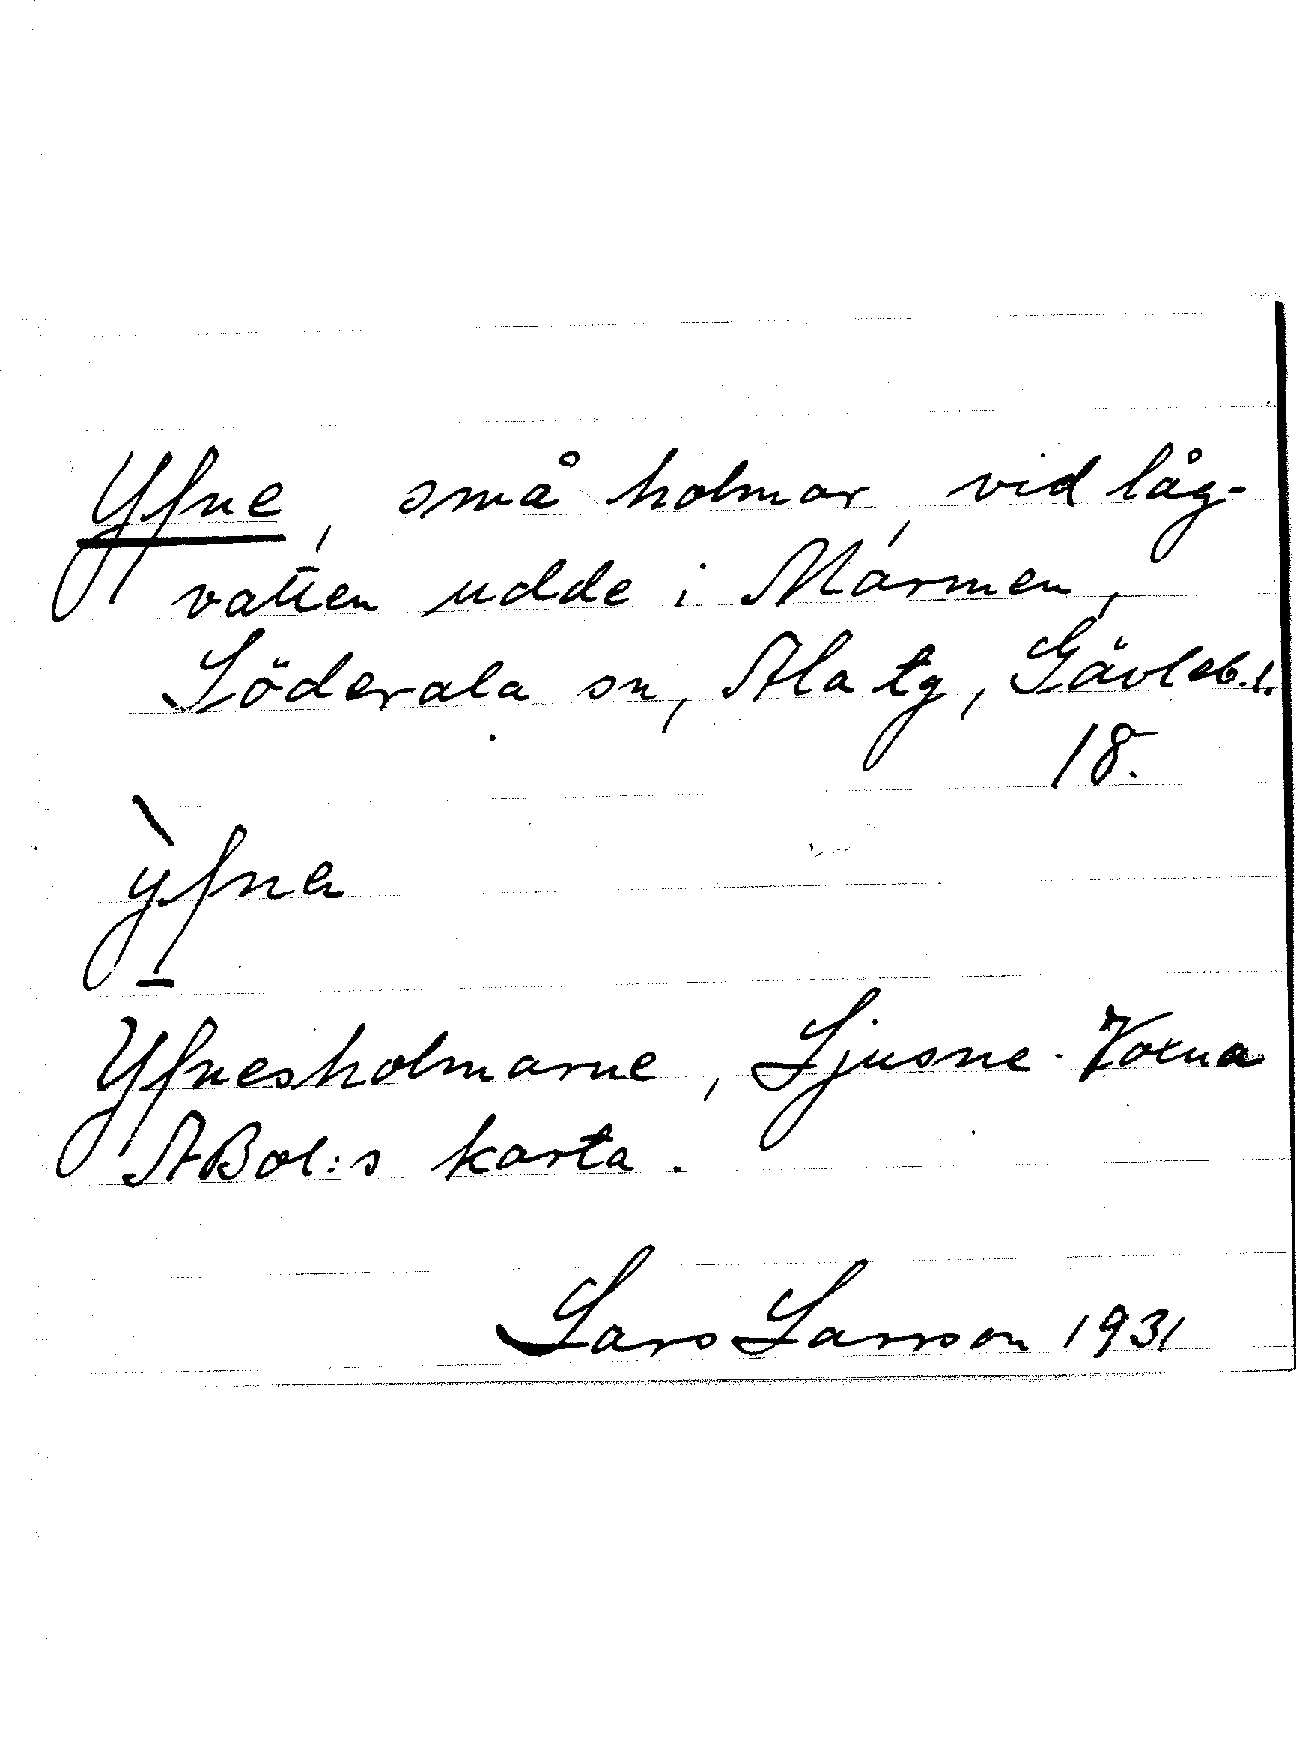 Yfne, små holmar, vid låg-
vatten udde i Marmen,
Söderala sn, Ala tg, Gävleb. l.
18.
ỳfna
Yfnesholmarne, Ljusne-Voxna
ABol:s karta.
Lars Larsson 1931